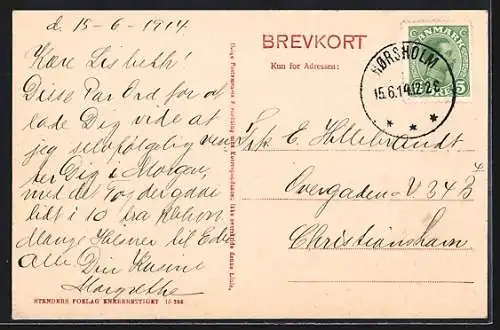 d. 15-6-1914
Kære Lisbeth!
Disse Par Ord for at
lade Dig vide at
jeg selvfølgelig venter
Dig i Morgen,
med det Tog der gaar
lidt i 10 fra Stationen.
Mange Hilsner til Eder
Alle Din Kusine
Margrethe
STENDERS FORLAG ENEBERETTIGET 15 386
BREVKORT
Kun for Adressen:
DANMARK
5
HØRSHOLM
15.6.14.12-2E
Frk. E. Hillebrandt
Overgaden o/V 34 B 4
Christianshavn